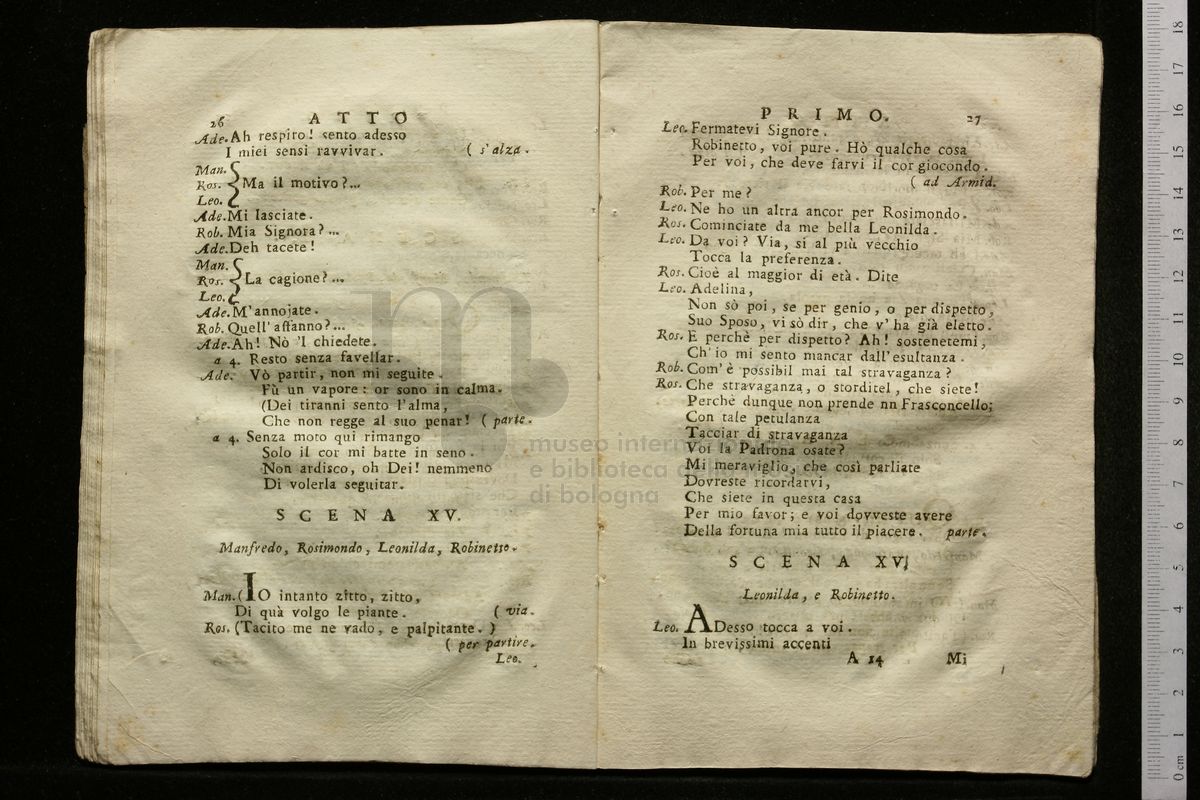 26 ATTO
Ade. Ah respiro! sento adesso
I miei sensi ravvivar. ( s'alza.
Man.
Ros. Ma il motivo?...
Leo.
Ade. Mi lasciate.
Rob. Mia Signora?...
Ade. Deh tacete!
Man.
Ros. La cagione?...
Leo.
Ade. M'annojate.
Rob. Quell' affanno?...
Ade. Ah! Nò 'l chiedete.
a 4. Resto senza favellar.
Ade. Vò partir, non mi seguite.
Fù un vapore: or sono in calma.
(Dei tiranni sento l'alma,
Che non regge al suo penar! ( parte.
a 4. Senza moto qui rimango
Solo il cor mi batte in seno.
Non ardisco, oh Dei! nemmeno
Di volerla seguitar.
SCENA XV.
Manfredo, Rosimondo, Leonilda, Robinetto.
Man. (Io intanto zitto, zitto,
Di quà volgo le piante. ( via.
Ros. (Tacito me ne vado, e palpitante. )
( per partire.
Leo.
PRIMO. 27
Leo. Fermatevi Signore.
Robinetto, voi pure. Hò qualche cosa
Per voi, che deve farvi il cor giocondo.
( ad Armid.
Rob. Per me?
Leo. Ne ho un altra ancor per Rosimondo.
Ros. Cominciate da me bella Leonilda.
Leo. Da voi? Via, si al più vecchio
Tocca la preferenza.
Ros. Cioè al maggior di età. Dite
Leo. Adelina,
Non sò poi, se per genio, o per dispetto,
Suo Sposo, vi sò dir, che v'ha già eletto.
Ros. E perchè per dispetto? Ah! sostenetemi,
Ch'io mi sento mancar dall'esultanza.
Rob. Com'è possibil mai tal stravaganza?
Ros. Che stravaganza, o storditel, che siete!
Perchè dunque non prende nn Frasconcello;
Con tale petulanza
Tacciar di stravaganza
Voi la Padrona osate?
Mi meraviglio, che così parliate
Dovreste ricordarvi,
Che siete in questa casa
Per mio favor; e voi dovveste avere
Della fortuna mia tutto il piacere. parte.
SCENA XVI
Leonilda, e Robinetto.
Leo. ADesso tocca a voi.
In brevissimi accenti
A 14 Mi
museo internazionale
e biblioteca della
di bologna
0 cm 1 2 3 4 5 6 7 8 9 10 11 12 13 14 15 16 17 18